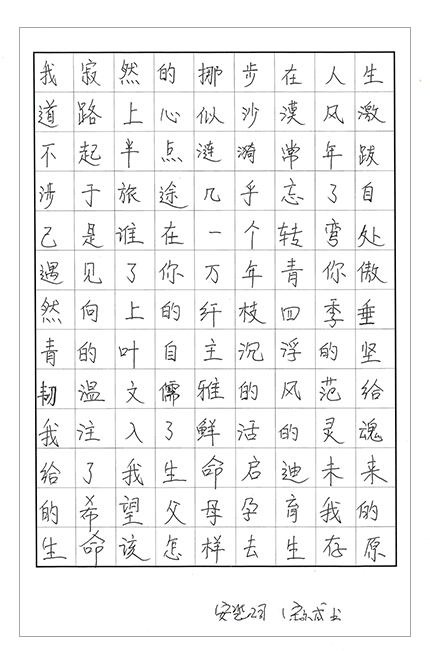 我寂然的挪步在人生
道路上心似沙漠风激
不起半点涟漪常年跋
涉于旅途几乎忘了自
己是谁在一个转弯处
遇见了你万年青你傲
然向上的纤枝四季垂
青的叶自主沉浮的坚
韧温文儒雅的风范给
我注入了鲜活的灵魂
给了我生命启迪未来
的希望父母孕育我的
生命该怎样去生存原